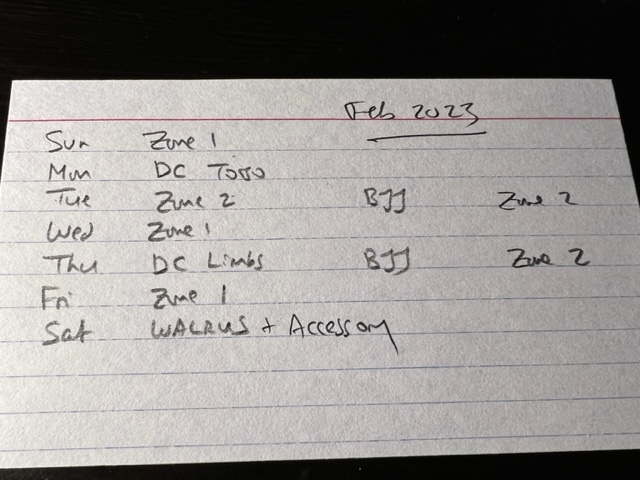 Feb 2023
Sun Zone 1
Mon DC Torso
Tue Zone 2 BJJ Zone 2
Wed Zone 1
Thu DC Limbs BJJ Zone 2
Fri Zone 1
Sat WALRUS + Accessory